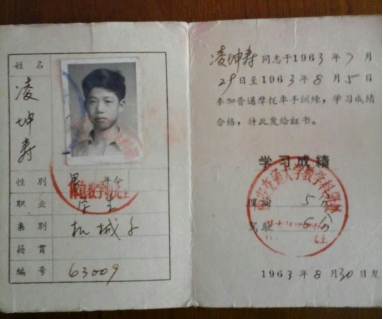 姓名
凌坤寿
性别
职业 学生
系别 机械系
籍贯
编号 63009
凌坤寿同志于1963年7月
29日至1963年8月5日
参加普通摩托车手训练，学习成绩
合格，特此发给证书。
学习成绩
理论 5分
驾驶 5分
1963年8月30日发